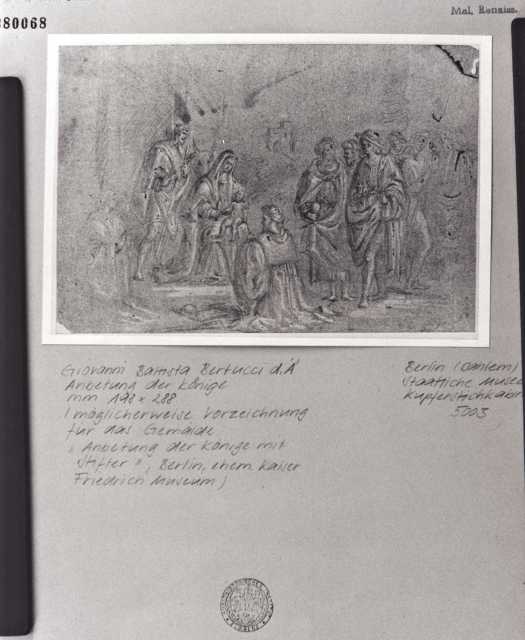 Mal. Renaiss.
380068
Giovanni Battista Bertucci d.Ä
Anbetung der Könige
mm 198 x 288
(möglicherweise Vorzeichnung
für das Gemälde
„Anbetung der Könige mit
Stifter", Berlin, ehem. Kaiser
Friedrich Museum)
Berlin (Dahlem)
Staatliche Musee
Kupferstichkabin
5003